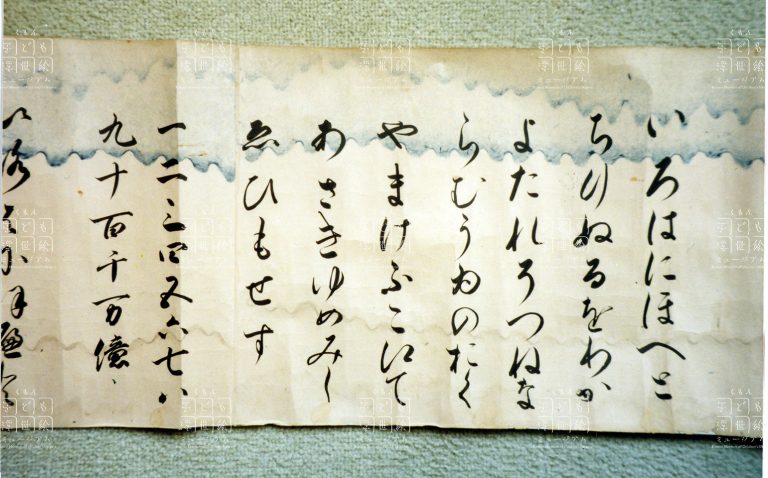 いろはにほへと
ちりぬるをわか
よたれそつねな
らむうゐのおく
やまけふこえて
あさきゆめみし
ゑひもせす
一二三四五六七八
九十百千万億
くもん
子ども
浮世絵
ミュージアム